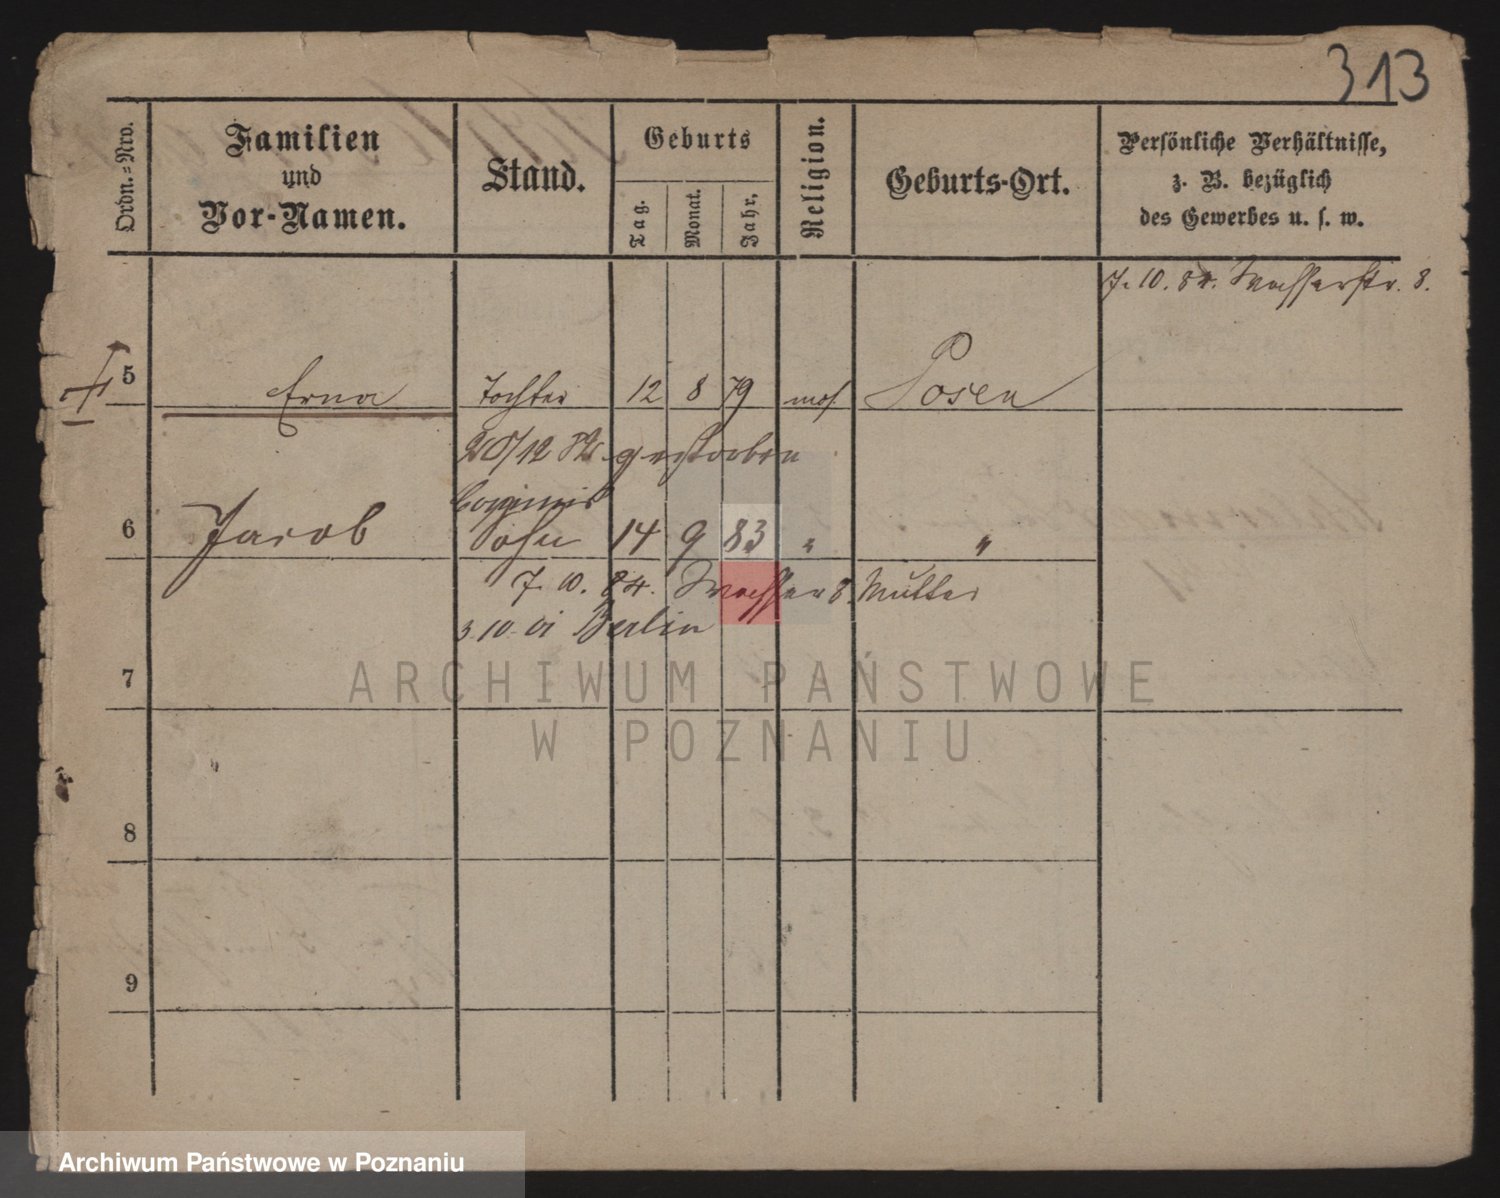 313
Ordn.=Nro.
Familien
und
Vor-Namen.
Stand.
Geburts
Tag.
Monat.
Jahr.
Religion.
Geburts-Ort.
Persönliche Verhältnisse,
z. B. bezüglich
des Gewerbes u. s. w.
7. 10. 84. Wasserstr. 8.
5 Erna Tochter 12 8 79 mos Posen
20/12 gestorben
6 Jacob Sohn 14 9 83 " "
7. 10. 84. Wasser 8. Mutter
3 10 01 Berlin
7
ARCHIWUM PAŃSTWOWE
W POZNANIU
8
9
Archiwum Państwowe w Poznaniu